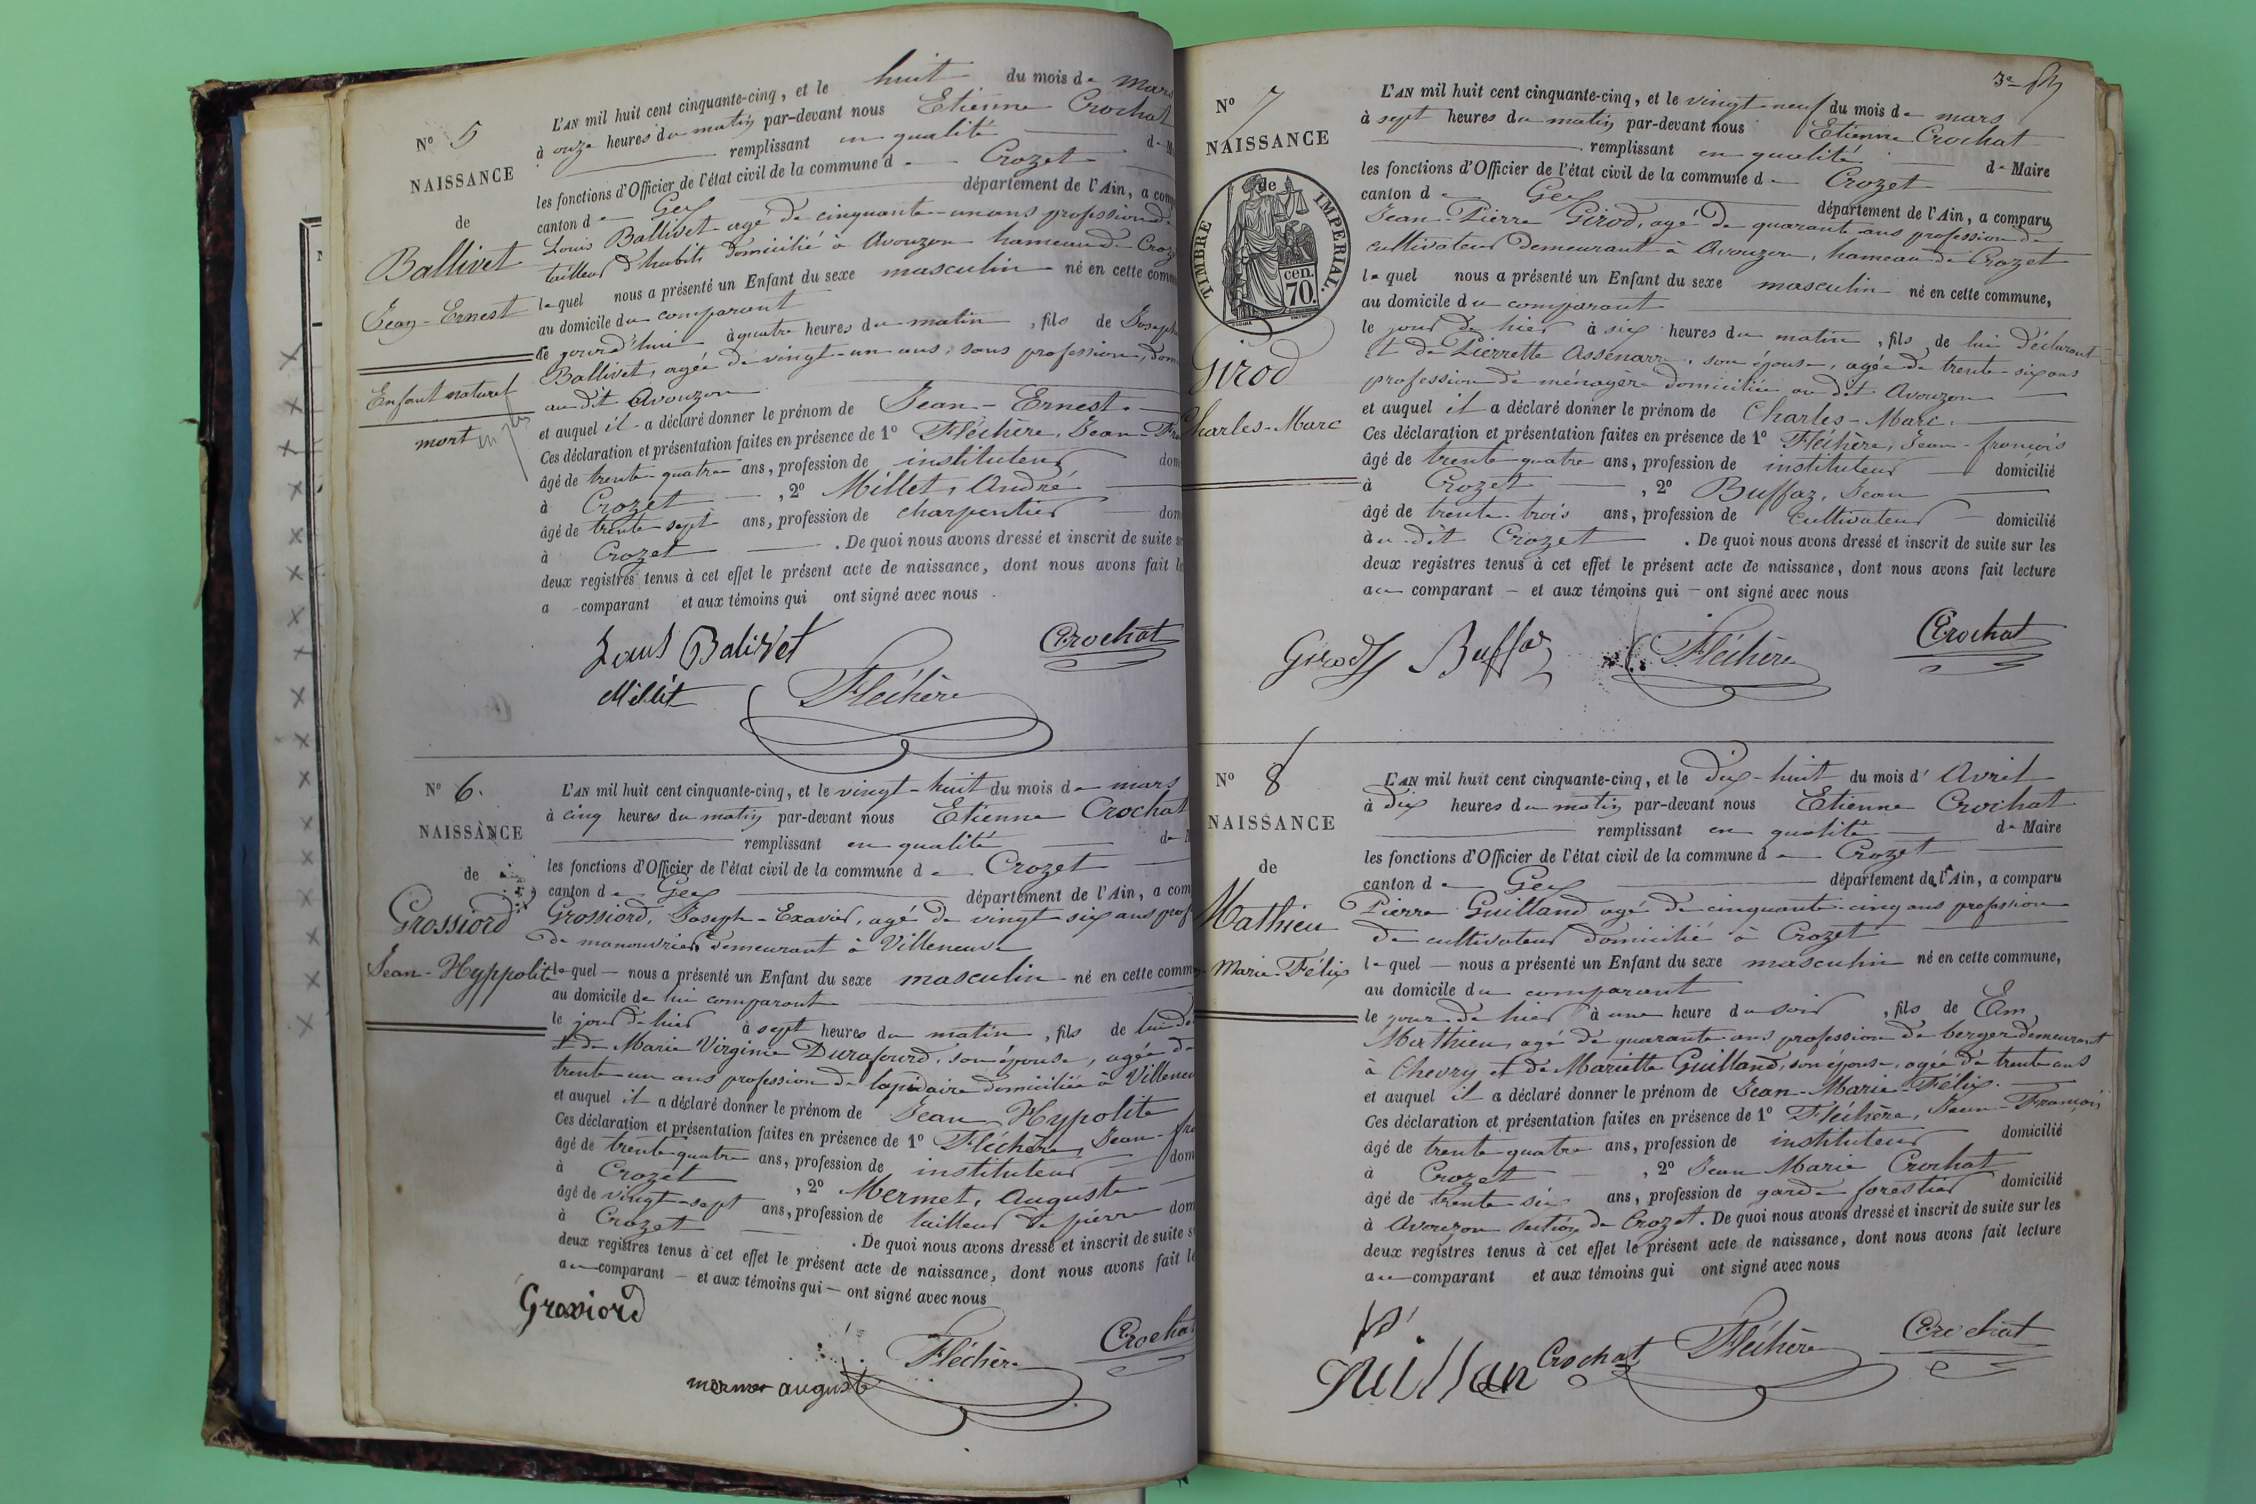 N° 5
NAISSANCE
de
Ballivet
Jean-Ernest
Enfant naturel
mort
L'AN mil huit cent cinquante-cinq, et le huit du mois de mars
à onze heures du matin par-devant nous Etienne Crochat
remplissant en qualité de M
les fonctions d'Officier de l'état civil de la commune de Crozet
canton de Gex département de l'Ain, a comp
Louis Ballivet agé de cinquante-un ans profession de
tailleur d'habits domicilié à Avouzon hameau de Croz
lequel nous a présenté un Enfant du sexe masculin né en cette comm
au domicile du comparant
le jourd'hui à quatre heures du matin, fils de Joseph
Ballivet, agée de vingt-un ans, sans profession, dom
au dit Avouzon
et auquel il a déclaré donner le prénom de Jean-Ernest.
Ces déclaration et présentation faites en présence de 1° Fléchère, Jean-Fra
âgé de trente-quatre ans, profession de instituteur dom
à Crozet, 2° Millet, André
âgé de trente-sept ans, profession de charpentier dom
à Crozet. De quoi nous avons dressé et inscrit de suite s
deux registres tenus à cet effet le présent acte de naissance, dont nous avons fait le
a comparant et aux témoins qui ont signé avec nous.
Louis Balivet Crochat
Millet Fléchère
N° 6.
NAISSANCE
de
Grossiord
Jean-Hyppolite
L'AN mil huit cent cinquante-cinq, et le vingt-huit du mois de mars
à cinq heures du matin par-devant nous Etienne Crochat
remplissant en qualité de M
les fonctions d'Officier de l'état civil de la commune de Crozet
canton de Gex département de l'Ain, a com
Grossiord, Joseph-Exavier, agé de vingt-six ans prof
de manouvrier demeurant à Villeneuve
lequel nous a présenté un Enfant du sexe masculin né en cette comm
au domicile de lui comparant
le jour d'hier à sept heures du matin, fils de lui dé
et de Marie Virginie Durafourd, son épouse, agée de
trente-un ans profession de lapidaire domiciliée à Villeneu
et auquel il a déclaré donner le prénom de Jean Hypolite
Ces déclaration et présentation faites en présence de 1° Fléchère, Jean-fra
âgé de trente-quatre ans, profession de instituteur dom
à Crozet, 2° Mermet, Auguste
âgé de vingt-sept ans, profession de tailleur de pierre dom
à Crozet. De quoi nous avons dressé et inscrit de suite s
deux registres tenus à cet effet le présent acte de naissance, dont nous avons fait le
au comparant et aux témoins qui ont signé avec nous
Grossiord
Fléchère Crochat
mermet auguste
3e
N° 7
NAISSANCE
de
TIMBRE IMPERIAL.
70. cen.
Girod
Charles-Marc
L'AN mil huit cent cinquante-cinq, et le vingt-neuf du mois de mars
à sept heures du matin par-devant nous Etienne Crochat
remplissant en qualité de Maire
les fonctions d'Officier de l'état civil de la commune de Crozet
canton de Gex département de l'Ain, a comparu
Jean-Pierre Girod, agé de quarante ans profession de
cultivateur demeurant à Avouzon, hameau de Crozet
lequel nous a présenté un Enfant du sexe masculin né en cette commune,
au domicile du comparant
le jour de hier à six heures du matin, fils de lui déclarant
et de Pierrette Assenarre, son épouse, agée de trente-six ans
profession de ménagère domiciliée au dit Avouzon
et auquel il a déclaré donner le prénom de Charles-Marc.
Ces déclaration et présentation faites en présence de 1° Fléchère, Jean-françois
âgé de trente-quatre ans, profession de instituteur domicilié
à Crozet, 2° Buffaz, Jean
âgé de trente-trois ans, profession de cultivateur domicilié
à au dit Crozet. De quoi nous avons dressé et inscrit de suite sur les
deux registres tenus à cet effet le présent acte de naissance, dont nous avons fait lecture
au comparant et aux témoins qui ont signé avec nous
Girod Buffaz Fléchère Crochat
N° 8
NAISSANCE
de
Mathieu
Marie-Félix
L'AN mil huit cent cinquante-cinq, et le dix-huit du mois d'Avril
à dix heures du matin par-devant nous Etienne Crochat
remplissant en qualité de Maire
les fonctions d'Officier de l'état civil de la commune de Crozet
canton de Gex département de l'Ain, a comparu
Pierre Guilland agé de cinquante-cinq ans profession
de cultivateur domicilié à Crozet
lequel nous a présenté un Enfant du sexe masculin né en cette commune,
au domicile du comparant
le jour de hier à une heure du soir, fils de
Mathieu, agé de quarante ans profession de berger demeurant
à Chevry et de Mariette Guilland, son épouse, agée de trente ans
et auquel il a déclaré donner le prénom de Jean-Marie-Félix.
Ces déclaration et présentation faites en présence de 1° Fléchère, Jean-François
âgé de trente-quatre ans, profession de instituteur domicilié
à Crozet, 2° Jean Marie Crochat
âgé de trente six ans, profession de garde forestier domicilié
à Avouzon section de Crozet. De quoi nous avons dressé et inscrit de suite sur les
deux registres tenus à cet effet le présent acte de naissance, dont nous avons fait lecture
au comparant et aux témoins qui ont signé avec nous
Guillan Crochat Fléchère Crochat